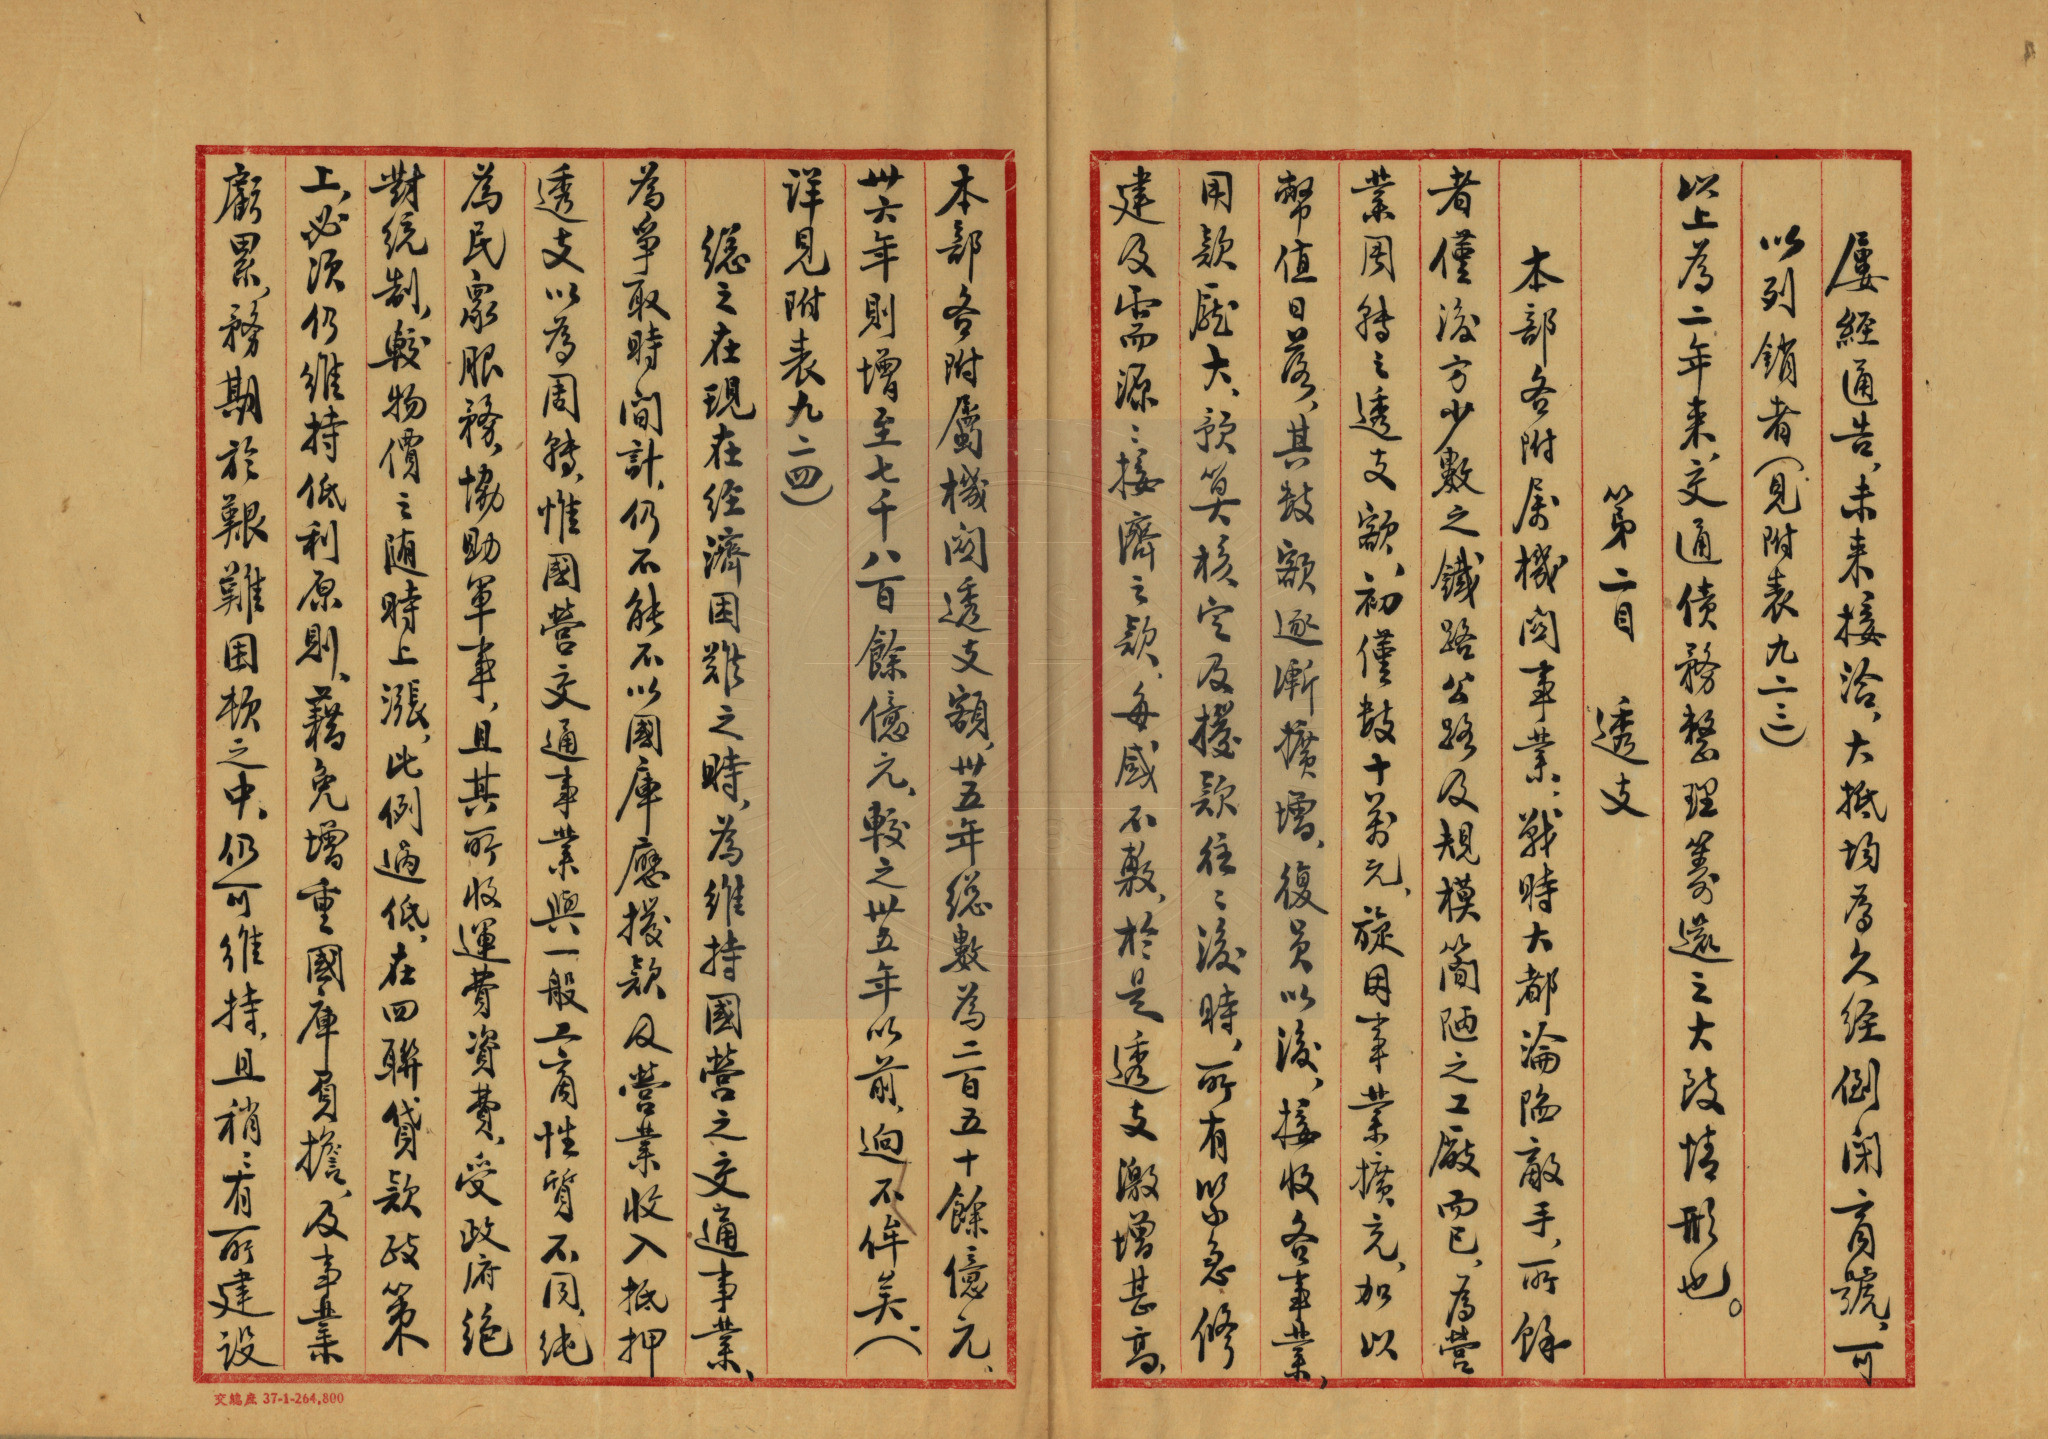 屢經通告、未来接洽、大抵均為久经倒闭商號、可
以列銷者(見附表九二三)
以上為二年来、交通债務整理籌還之大致情形也。
第二目 透支
本部各附属機関事業、戰時大都淪陷敵手、所餘
者僅後方少數之鐵路公路及規模簡陋之工厰而已、為營
業周轉之透支額、初僅数十萬元、旋因事業擴充、加以
幣值日落、其数額逐漸擴增、復員以後、接收各事業、
用款厐大、預算核定及撥款往〻後時、所有紧急修
建及需源〻接濟之款、每感不敷、於是透支激增甚髙、
本部各附屬機関透支額、卅五年總數為二百五十餘億元、
卅六年則增至七千八百餘億元、較之卅五年以前、逈不侔矣、(
详見附表九二四)
總之在現在经濟困难之時、為維持國營之交通事業、
為爭取時間計、仍不能不以國庫應撥款及營業收入抵押
透支以為周轉、惟國營交通事業與一般工商性質不同、纯
為民眾服務、協助軍事、且其所收運費資費、受政府绝
對统制、較物價之随時上漲、此例過低、在四聯貸款政策
上、必須仍維持低利原則、藉免增重國庫負擔、及事業
虧累、務期於艱難困頓之中、仍可維持、且稍〻有所建设
交總庄 37-1-264,800